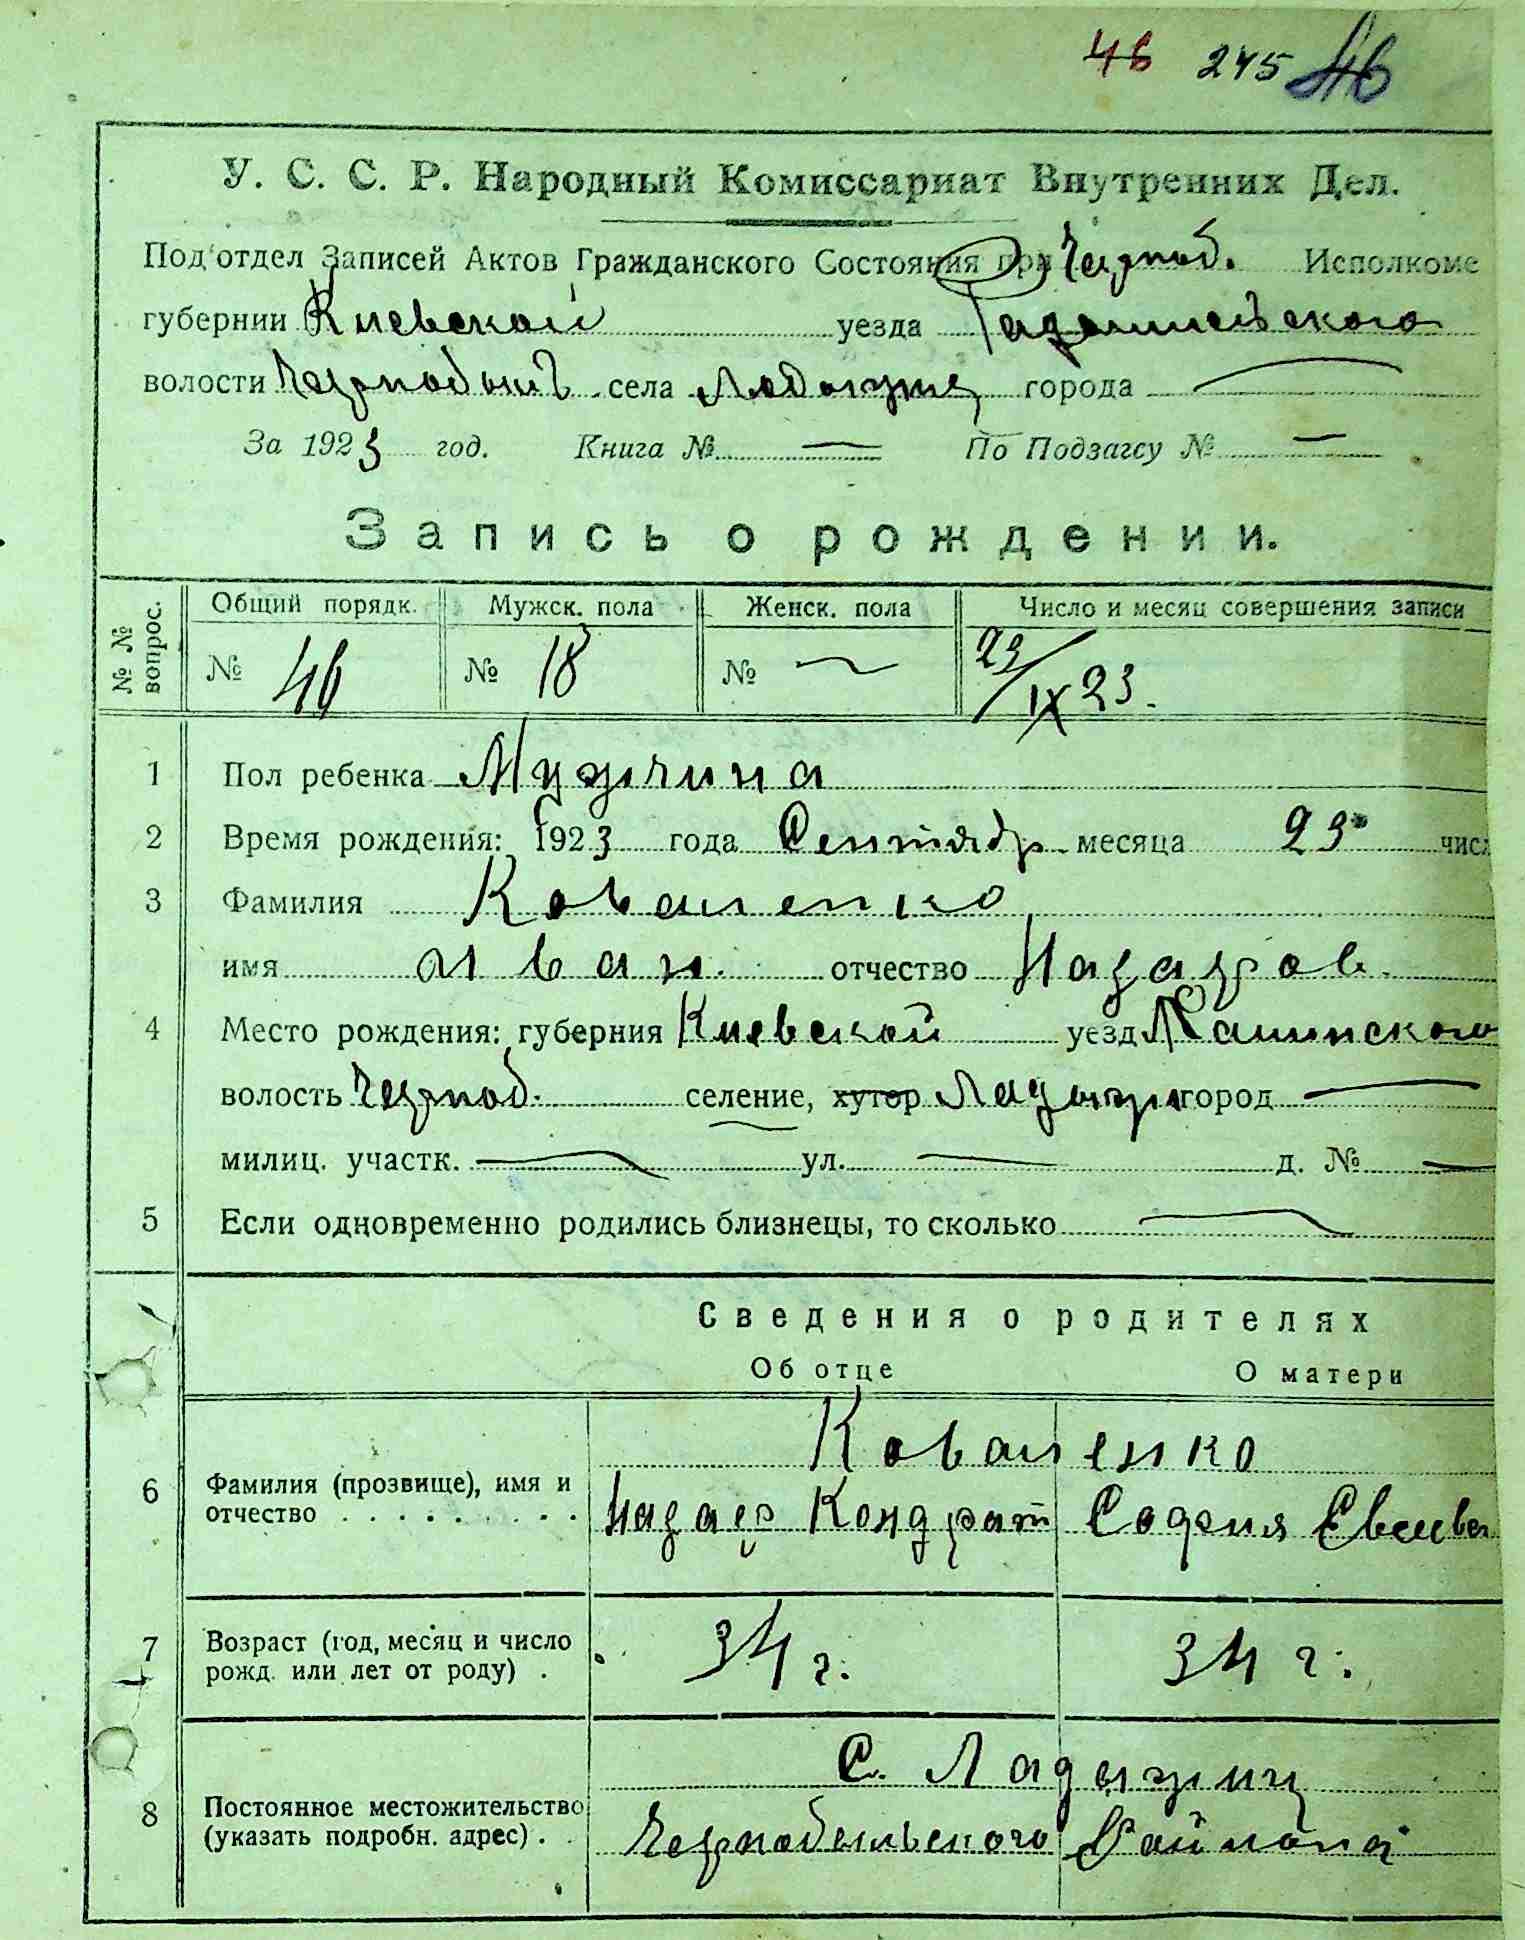 46 245 46
У. С. С. Р. Народный Комиссариат Внутренних Дел.
Под'отдел Записей Актов Гражданского Состояния при Черноб. Исполкоме
губернии Киевской уезда Радомысльского
волости Чернобыл села города
За 1923 год. Книга № — По Подзагсу № —
Запись о рождении.
№ № вопрос.
Общий порядк. Мужск. пола Женск. пола Число и месяц совершения записи
№ 46 № 18 № — 23/IX 23.
1 Пол ребенка Мужчина
2 Время рождения: 1923 года Сентябр месяца 23 числ
3 Фамилия Коваленко
имя Иван отчество Назаров.
4 Место рождения: губерния Киевской уезд
волость Черноб. селение, хутор город —
милиц. участк. — ул. — д. № —
5 Если одновременно родились близнецы, то сколько —
Сведения о родителях
Об отце О матери
Коваленко
6 Фамилия (прозвище), имя и отчество . . . . . . . . . Назар Кондрат София
7 Возраст (год, месяц и число рожд. или лет от роду) . 34 г. 34 г.
С. Ладыжич
8 Постоянное местожительство (указать подробн. адрес) . . Чернобыльского Района